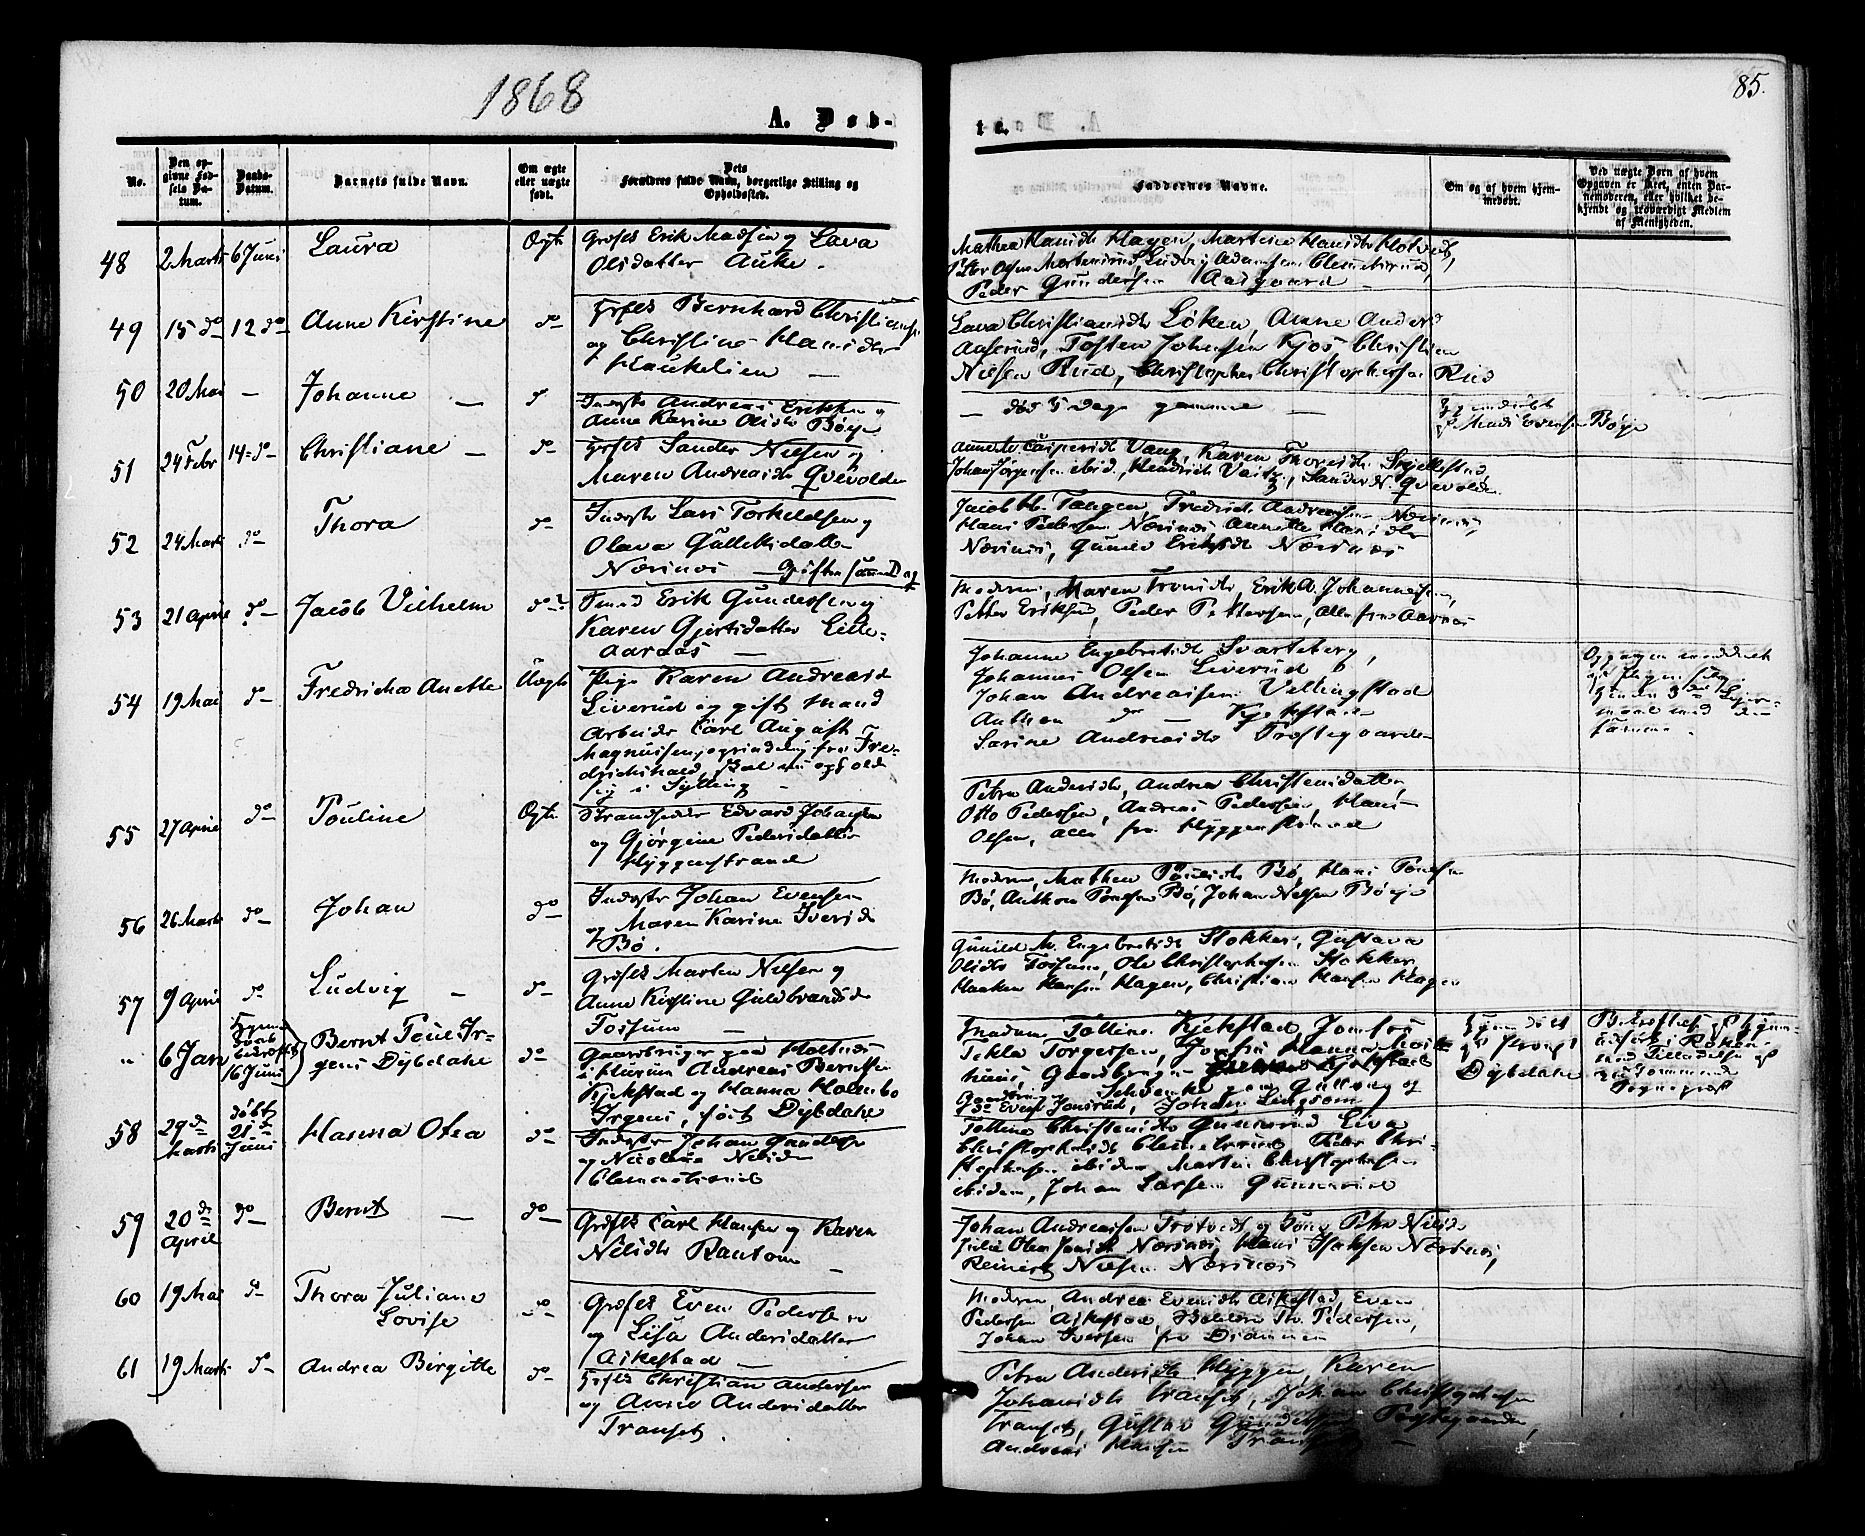 1868
A. Døb-
te.
85.
No.
Den opgivne Fødsels Datum.
Daabs-Datum.
Barnets fulde Navn.
Om ægte eller uægte født.
Dets Forældres fulde Navn, borgerlige Stilling og Opholdssted.
Faddernes Navne.
Om og af hvem hjemmedøbt.
Ved uægte Børn af hvem Opgaven er skeet, enten Barnemoderen, eller hvilket bekjendt og troværdigt Medlem af Menigheden.
48 2 Marts 6 Juni Laura Ægte
Grdfs Erik Madsen og Lava
Olsdatter Auke.
Mathea Hansdtr Hagen, Martine Hansdtr Holtvedt,
Peder Gundersen Aasgaard
49 15 do 12 do Anne Kirstine do
Hfds Bernhard Christians
og Christine Hansdtr
Haukelien
Lava Christiansdtr Løken, Anne Andersd
Aaserud, Tosten Johnsen Kjos, Christian
Nilsen Rud, Christopher Christophersen Rud
50 20 Mai — Johanne
Indrstr Andreas Eriksen og
Anne Karine Olsdtr Bøije
— død 5 Dage gammel —
Hjemdøbt
51 24 Febr 14 do Christiane do
Hfds Sander Nilsen og
Maren Andreasdtr Qvevolden
Karen Thoresdtr Skjellestad
Johan Jørgensen ibid, Hendrick Vaitz, Sander N. Qvevolden
52 24 Marts do Thora do
Indrstr Lars Torkildsen og
Olava Gulleksdatter
Nærsnæs
Jacob H. Tangen, Fredrik Andreassen Nærsnæs
Hans Pedersen Nærsnæs Annette Hansdtr
Nærsnæs, Gunild Eriksdtr Nærsnæs
53 21 April do Jacob Vilhelm do
Smed Erik Gundersen og
Karen Gjertsdatter Lille-
Aarnæs
Moderen, Maren Tronsdtr, Erik A. Johannesen,
Petter Eriksen, Peder Pettersen, Alle fra Aarnæs
54 19 Mai do Fredricha Anette Uægte
Pige Karen Andreasd
Liverud og gift Mand
Arbeider Carl August
Magnussen, fra Fre-
drickshald, opholder
sig i Sylling
Johanne Engebretsdtr Svarteberg,
Johannes Olsen Liverud
Johan Andreassen Vellingstad
Anthon do — Kjekstad
Sarine Andreasdtr Prestegaarden
55 27 April do Pouline Ægte
Strandsidder Edvard Johansen
og Gjørgine Pedersdatter
Hyggenstrand
Petra Andersdtr, Andrea Christensdatter
Otto Pedersen, Andreas Pedersen, Hans
Olsen, alle fra Hyggenstrand
56 26 Marts do Johan do
Indrstr Johan Evensen
og Maren Karine Iversd
Bø.
Moderen, Mathea Poulsdtr Bø, Hans Poulsen
Bø, Anthon Poulsen Bø, Johan Nilsen Bøije
57 9 April do Ludvig do
Grdfs Marten Nilsen og
Anne Kirstine Guldbrandsdr
Fossum
Gunild M. Engebretsdtr Stokker, Gustava
Olsdtr Fossum, Ole Christophersen Stokker
Haaken Hansen Hagen, Christian Hansen Hagen
" 6 Jan Hjemdøb bekræftet 16 Juni Bernt Poul Ir-
gens Dybdahl do
Gaardbruger paa Holtnæs
i Hurum Andreas Berntsen
Kjekstad og Hanna Holmbo
Irgens, født Dybdahl
Madam Tolline Kjekstad, Jomfru
Tekla Torgersen, Jomfru Hanna
Schwenke paa Gulloug og
Evert Jonsrud, Johan Lingsom
Hjemdøbt
af Provst
Dybdahl
58 29 do Marts døbt 21 d Juni Hanna Olea do
Indrstr Johan Gunders
og Nicoline Nilsdr
Clemetsrud
Tolline Christensdtr Gunnerud Liva
Christophersdtr Clemetsrud Peder Chri-
stophersen ibidem Martin Christophersen
ibidem, Johan Larsen Gunnerud
59 20 de April do Bernt do
Grdfs Carl Hansen og Karen
Nilsdtr Ramton
Johan Andreassen Trøtvedt og Kone Petra Nilsdr
Julie Olea Jonsdtr Nærsnæs, Hans Isaksen Nærsnæs,
Reinert Nilsen Nærsnæs
60 19 Mai do Thora Juliane
Lovise do
Grdfs Even Pedersen
og Lisa Andersdatter
Aikestad
Moderen, Andrea Evensdtr Aikestad, Even
Pedersen Aikestad, Th. Pedersen,
Johan Iversen fra Drammen
61 19 Marts do Andrea Birgitte do
Hfds Christian Andersen
og Anne Andersdatter
Transet.
Petra Andersdtr Hyggen, Karen
Johansdtr Transet, Johan Christophersen
Transet, Gustav Gundersen Prestegaarden,
Andreas Hansen Transet